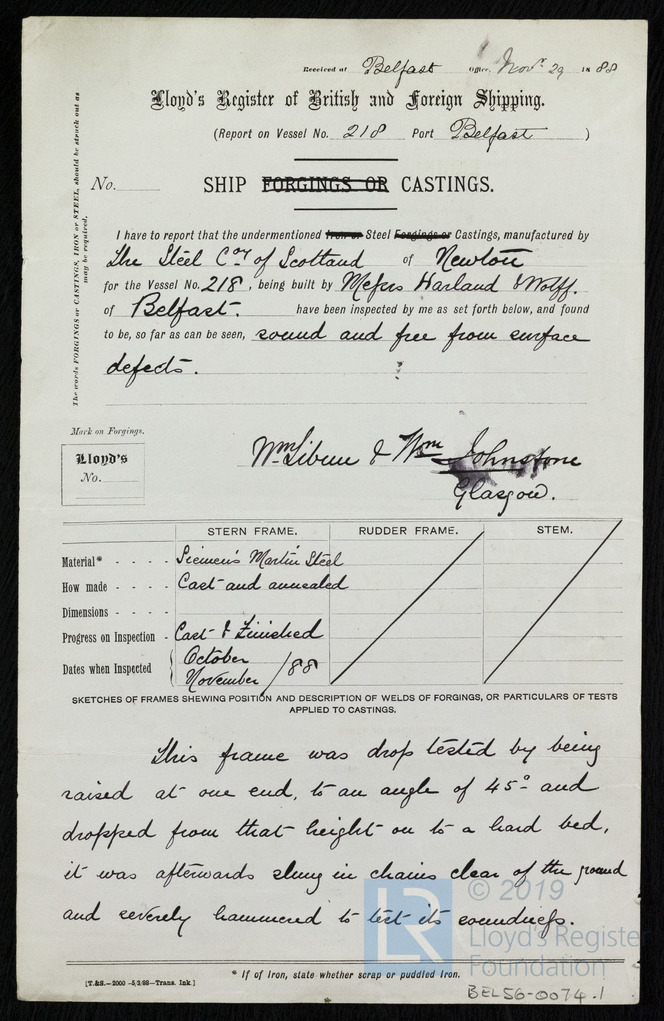 Received at Belfast Office, Novr 29 1888
Lloyd's Register of British and Foreign Shipping.
(Report on Vessel No. 218 Port Belfast )
No.
SHIP FORGINGS OR CASTINGS.
The words FORGINGS or CASTINGS, IRON or STEEL, should be struck out as
may be required.
I have to report that the undermentioned Iron or Steel Forgings or Castings, manufactured by
The Steel Coy of Scotland of Newton
for the Vessel No. 218, being built by Messrs Harland & Wolff.
of Belfast. have been inspected by me as set forth below, and found
to be, so far as can be seen, sound and free from surface
defects.
Mark on Forgings.
Lloyd's
No.
Wm & Wm Johnstone
Glasgow.
STERN FRAME. RUDDER FRAME. STEM.
Material* - - - - Siemens Martin Steel
How made - - - - Cast and annealed
Dimensions - - - -
Progress on Inspection - Cast & Finished
Dates when Inspected { October
November /88
SKETCHES OF FRAMES SHEWING POSITION AND DESCRIPTION OF WELDS OF FORGINGS, OR PARTICULARS OF TESTS
APPLIED TO CASTINGS.
This frame was drop tested by being
raised at one end, to an angle of 45° and
dropped from that height on to a hard bed,
it was afterwards slung in chains clear of the ground
and severely hammered to test its soundness.
LR © 2019
Lloyd's Register
Foundation
* If of Iron, state whether scrap or puddled Iron.
[T.&S.—2000—5/3/88—Trans. Ink.]
BEL56-0074.1